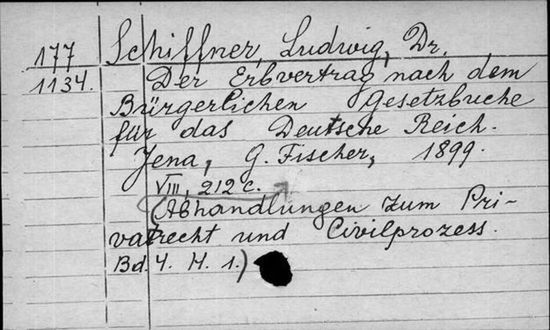 177
1134.
Schiffner, Ludwig, Dr.
Der Erbvertrag nach dem
Bürgerlichen Gesetzbuche
für das Deutsche Reich.
Jena, G. Fischer, 1899.
VIII, 212 c.
(Abhandlungen zum Pri-
vatrecht und Civilprozess.
Bd. 4. H. 1.)